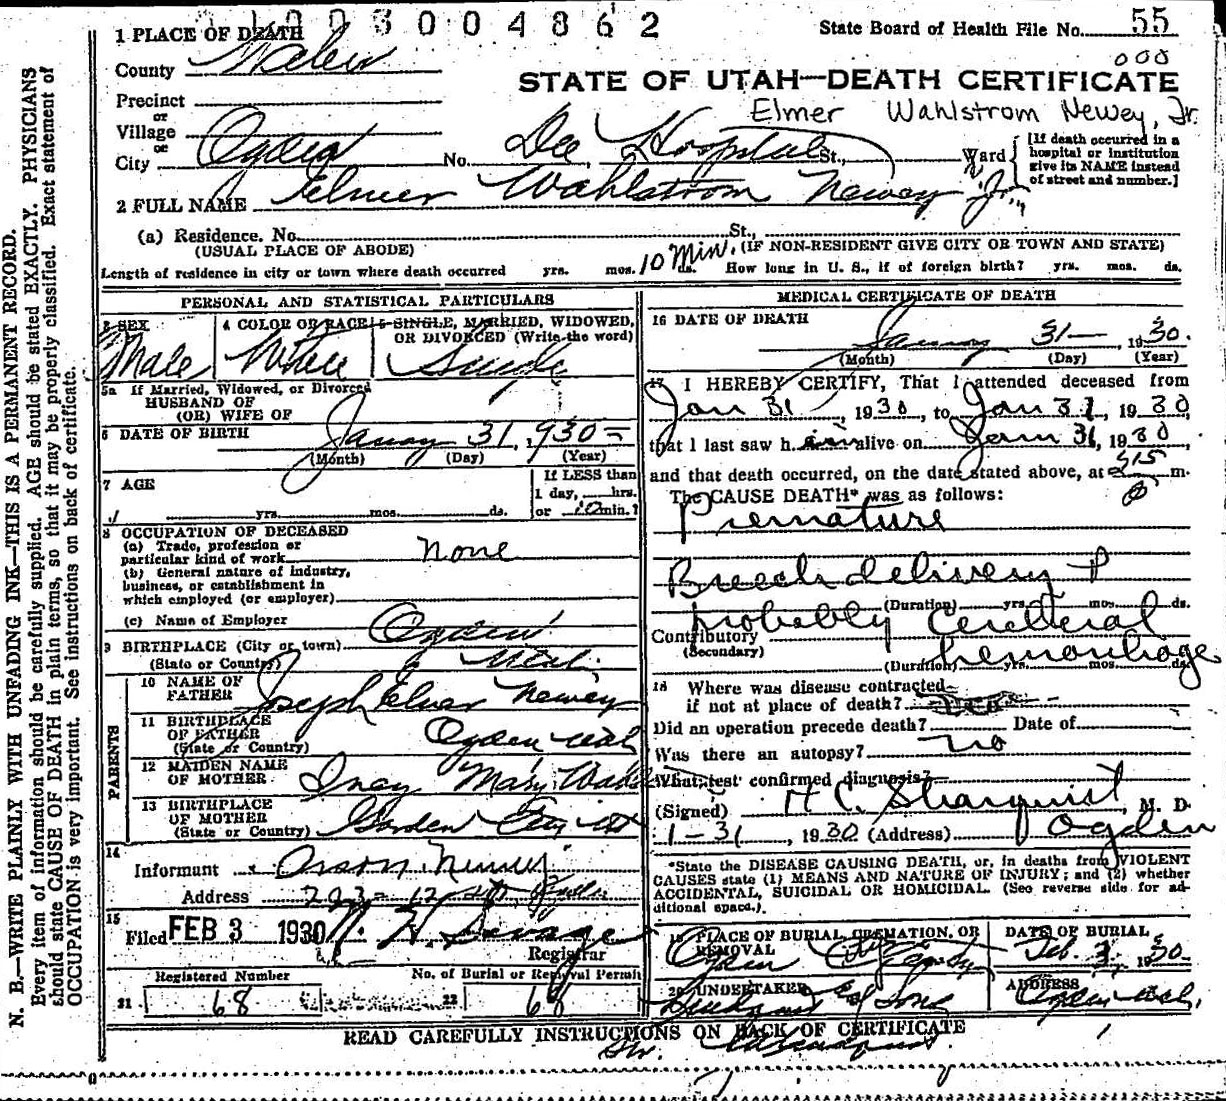 1003004862
State Board of Health File No. 55
000
1 PLACE OF DEATH
County Weber
STATE OF UTAH—DEATH CERTIFICATE
Precinct
or
Village
or
City Ogden No. Dee Hospital St., Ward
Elmer Wahlstrom Newey, Jr.
[If death occurred in a hospital or institution give its NAME instead of street and number.]
2 FULL NAME Elmer Wahlstrom Newey Jr.
(a) Residence. No. St.,
(USUAL PLACE OF ABODE) (IF NON-RESIDENT GIVE CITY OR TOWN AND STATE)
Length of residence in city or town where death occurred yrs. mos. 10 Min. ds. How long in U. S., if of foreign birth? yrs. mos. ds.
PERSONAL AND STATISTICAL PARTICULARS
3 SEX
Male
4 COLOR OR RACE
White
5 SINGLE, MARRIED, WIDOWED,
OR DIVORCED (Write the word)
Single
5a If Married, Widowed, or Divorced
HUSBAND OF
(OR) WIFE OF
6 DATE OF BIRTH January 31, 1930
(Month) (Day) (Year)
7 AGE
yrs. mos. ds.
If LESS than
1 day, hrs.
or 10 min.?
8 OCCUPATION OF DECEASED
(a) Trade, profession or
particular kind of work none
(b) General nature of industry,
business, or establishment in
which employed (or employer)
(c) Name of Employer
9 BIRTHPLACE (City or town) Ogden
(State or Country) Utah
PARENTS
10 NAME OF
FATHER Joseph Elmer Newey
11 BIRTHPLACE
OF FATHER
(State or Country) Ogden Utah
12 MAIDEN NAME
OF MOTHER Inez Mary
13 BIRTHPLACE
OF MOTHER
(State or Country) Garden City
14
Informant Orson Newey
Address
15
Filed FEB 3 1930 H. Savage
Registrar
Registered Number
21 68
No. of Burial or Removal Permit
22 68
MEDICAL CERTIFICATE OF DEATH
16 DATE OF DEATH
January 31— , 1930.
(Month) (Day) (Year)
17 I HEREBY CERTIFY, That I attended deceased from
Jan 31, 1930, to Jan 31, 1930,
that I last saw h im alive on Jan 31, 1930
and that death occurred, on the date stated above, at 215 m.
The CAUSE DEATH* was as follows:
Premature
Breech delivery &
(Duration) yrs. mos. ds.
probably Cerebral
Contributory
(Secondary)
hemorrhage
(Duration) yrs. mos. ds.
18 Where was disease contracted
if not at place of death?
Did an operation precede death? Date of
Was there an autopsy? no
What test confirmed diagnosis?
(Signed) H C Stranquist, M. D.
1-31, 1930 (Address) Ogden
*State the DISEASE CAUSING DEATH, or, in deaths from VIOLENT
CAUSES state (1) MEANS AND NATURE OF INJURY; and (2) whether
ACCIDENTAL, SUICIDAL OR HOMICIDAL. (See reverse side for ad-
ditional space.).
19 PLACE OF BURIAL, CREMATION, OR
REMOVAL
Ogden City
DATE OF BURIAL
Feb. 3, 1930.
20 UNDERTAKER
& Sons
ADDRESS
Ogden Utah.
READ CAREFULLY INSTRUCTIONS ON BACK OF CERTIFICATE
N. B.—WRITE PLAINLY WITH UNFADING INK—THIS IS A PERMANENT RECORD.
Every item of information should be carefully supplied. AGE should be stated EXACTLY. PHYSICIANS
should state CAUSE OF DEATH in plain terms, so that it may be properly classified. Exact statement of
OCCUPATION is very important. See instructions on back of certificate.